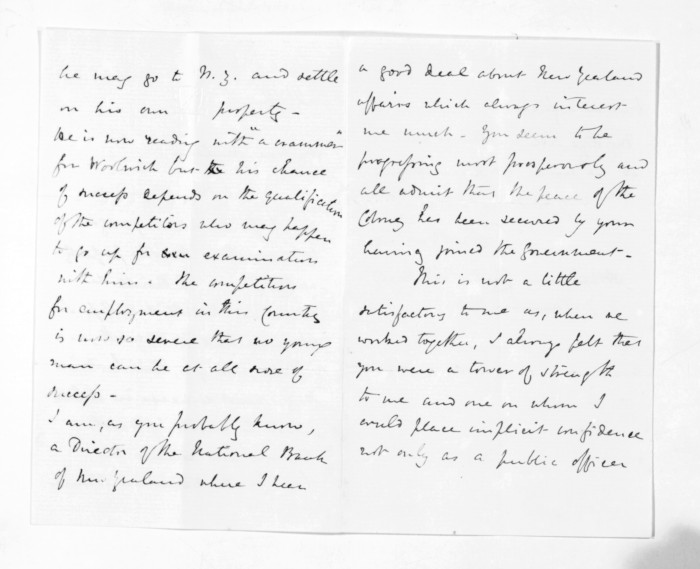 he may go to N. Z. and settle
on his own property -
He is now reading with "a crammer"
for Woolwich but his chance
of success depends on the qualification
of the competitors who may happen
to go up for examination
with him. The competition
for employment in this Country
is now so severe that no young
man can be at all sure of
success -
I am, as you probably know,
a Director of the National Bank
of New Zealand where I hear
a good deal about New Zealand
affairs which always interest
me much - You seem to be
progressing most prosperously and
all admit that the peace of the
Colony has been secured by your
having joined the Government -
This is not a little
satisfactory to me as, when we
worked together, I always felt that
you were a tower of strength
to me and one on whom I
could place implicit confidence
not only as a public officer